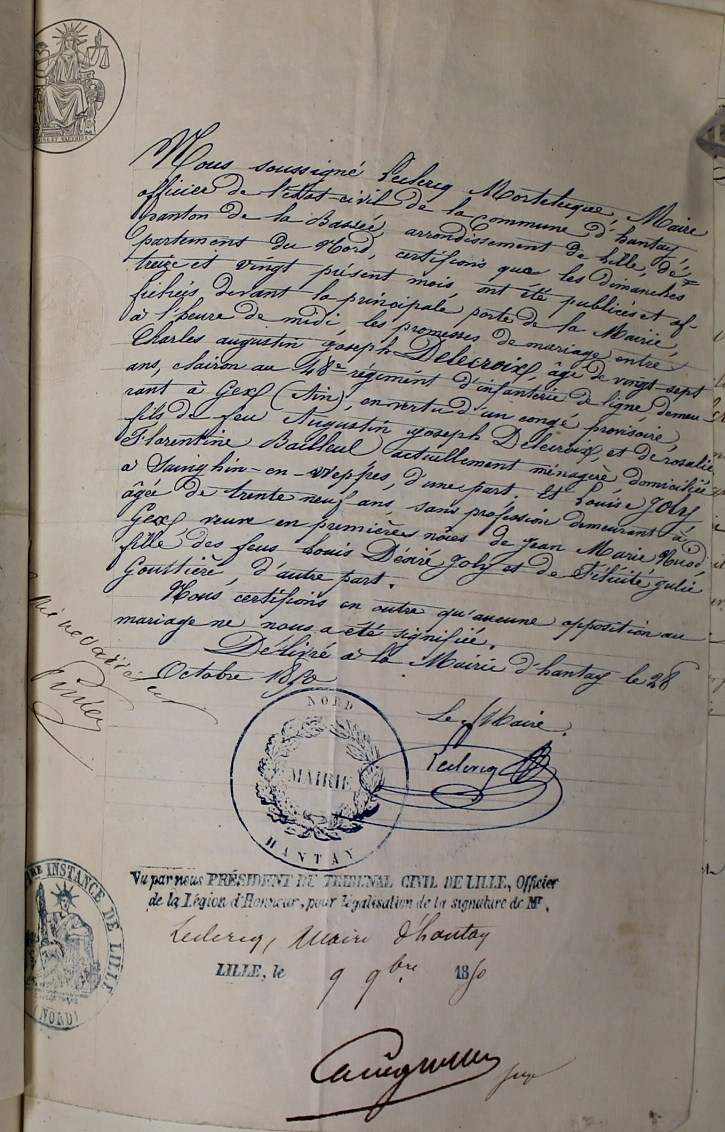 Nous soussigné Leclercq Mortelecque, Maire
officier de l'état-civil de la commune d'hantay,
canton de la Bassée, arrondissement de Lille, dé=
partement du Nord, certifions que les dimanches
treize et vingt présent mois, ont été publiées et af-
fichées devant la principale porte de la Mairie,
à l'heure de midi, les promesses de mariage entre
Charles augustin joseph Delecroix, âgé de vingt sept
ans, clairon au 48e régiment d'infanterie de ligne demeu
rant à Gex (Ain), en vertu d'un congé provisoire,
fils de feu Augustin joseph Delecroix, et de rosalie
Florentine Bailleul actuellement ménagère domiciliée
à Sainghin-en-Weppes, d'une part. Et Louise Joly
âgée de trente neuf ans, sans profession demeurant à
Gex veuve en premières nôces de Jean Marie
fille des feus Louis Désiré Joly et de Félicité Julie
Gouttière, d'autre part.
Nous certifions en outre qu'aucune opposition au
mariage ne nous a été signifiée.
Délivré à la Mairie d'hantay le 28
Octobre 1850
Le Maire
Leclercq
NORD
MAIRIE
HANTAY
Vu par nous PRÉSIDENT DU TRIBUNAL CIVIL DE LILLE, Officier
de la Légion d'Honneur, pour légalisation de la signature de Mr.
Leclercq, Maire d'hantay
LILLE, le 9 9bre 1850
INSTANCE DE LILLE
(NORD)